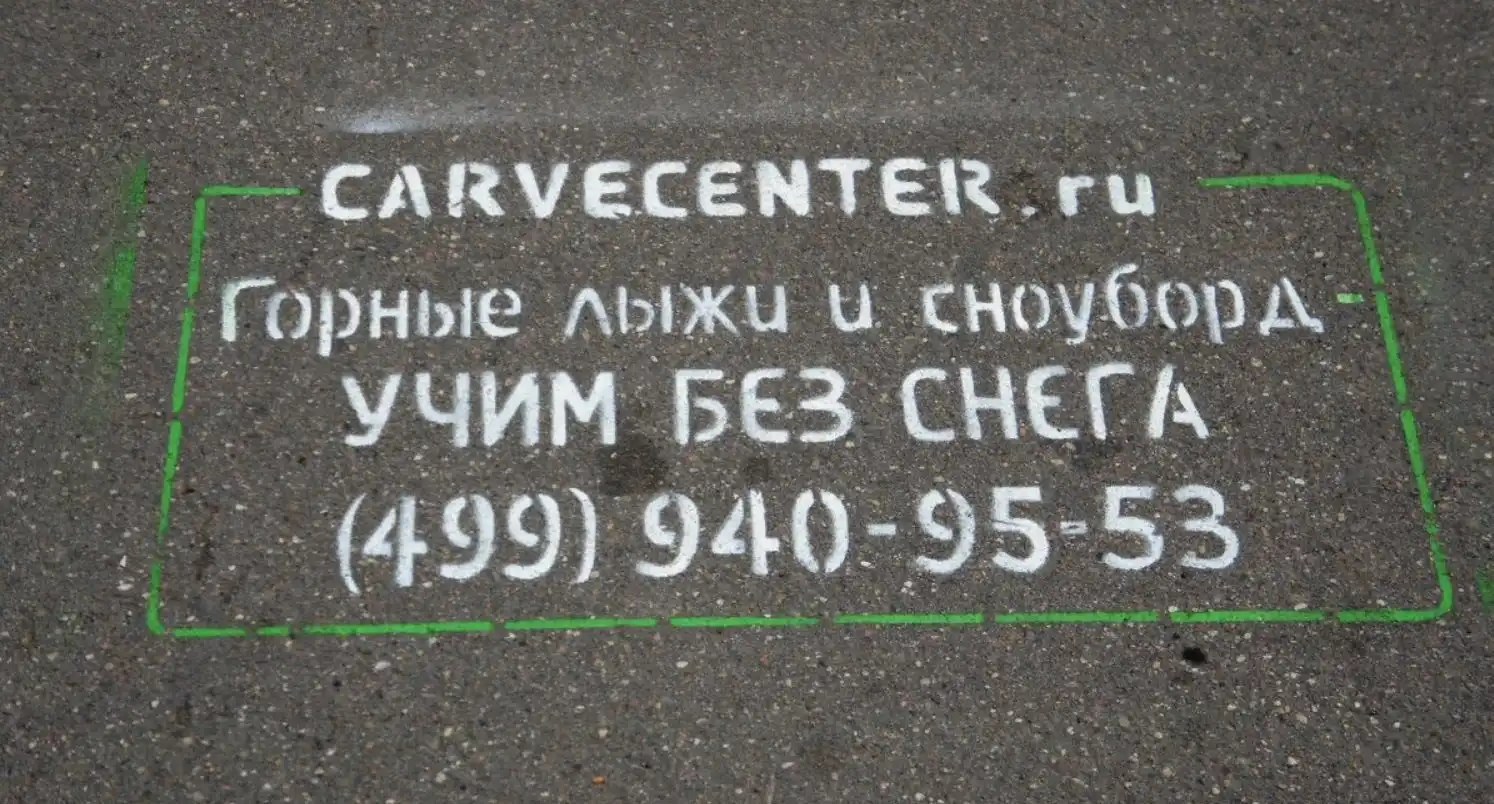 CARVECENTER.ru
Горные лыжи и сноуборд
УЧИМ БЕЗ СНЕГА
(499) 940-95-53